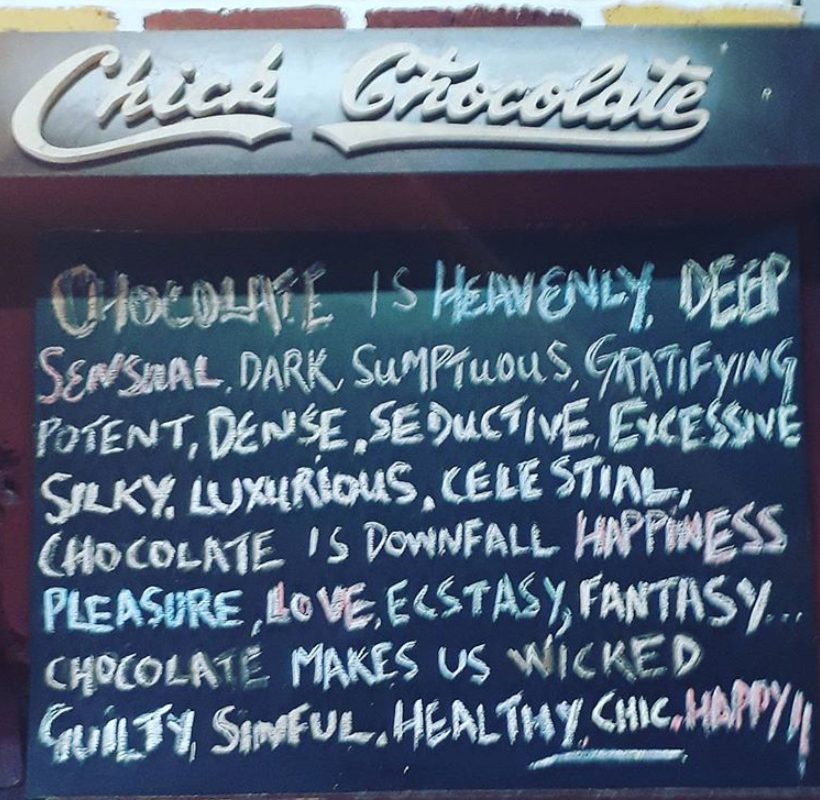 Chick Chocolate ®
CHOCOLATE IS HEAVENLY, DEEP
SENSUAL, DARK, SUMPTUOUS, GRATIFYING
POTENT, DENSE, SEDUCTIVE, EXCESSIVE
SILKY, LUXURIOUS, CELESTIAL,
CHOCOLATE IS DOWNFALL HAPPINESS
PLEASURE, LOVE, ECSTASY, FANTASY...
CHOCOLATE MAKES US WICKED
GUILTY, SINFUL, HEALTHY, CHIC, HAPPY!!